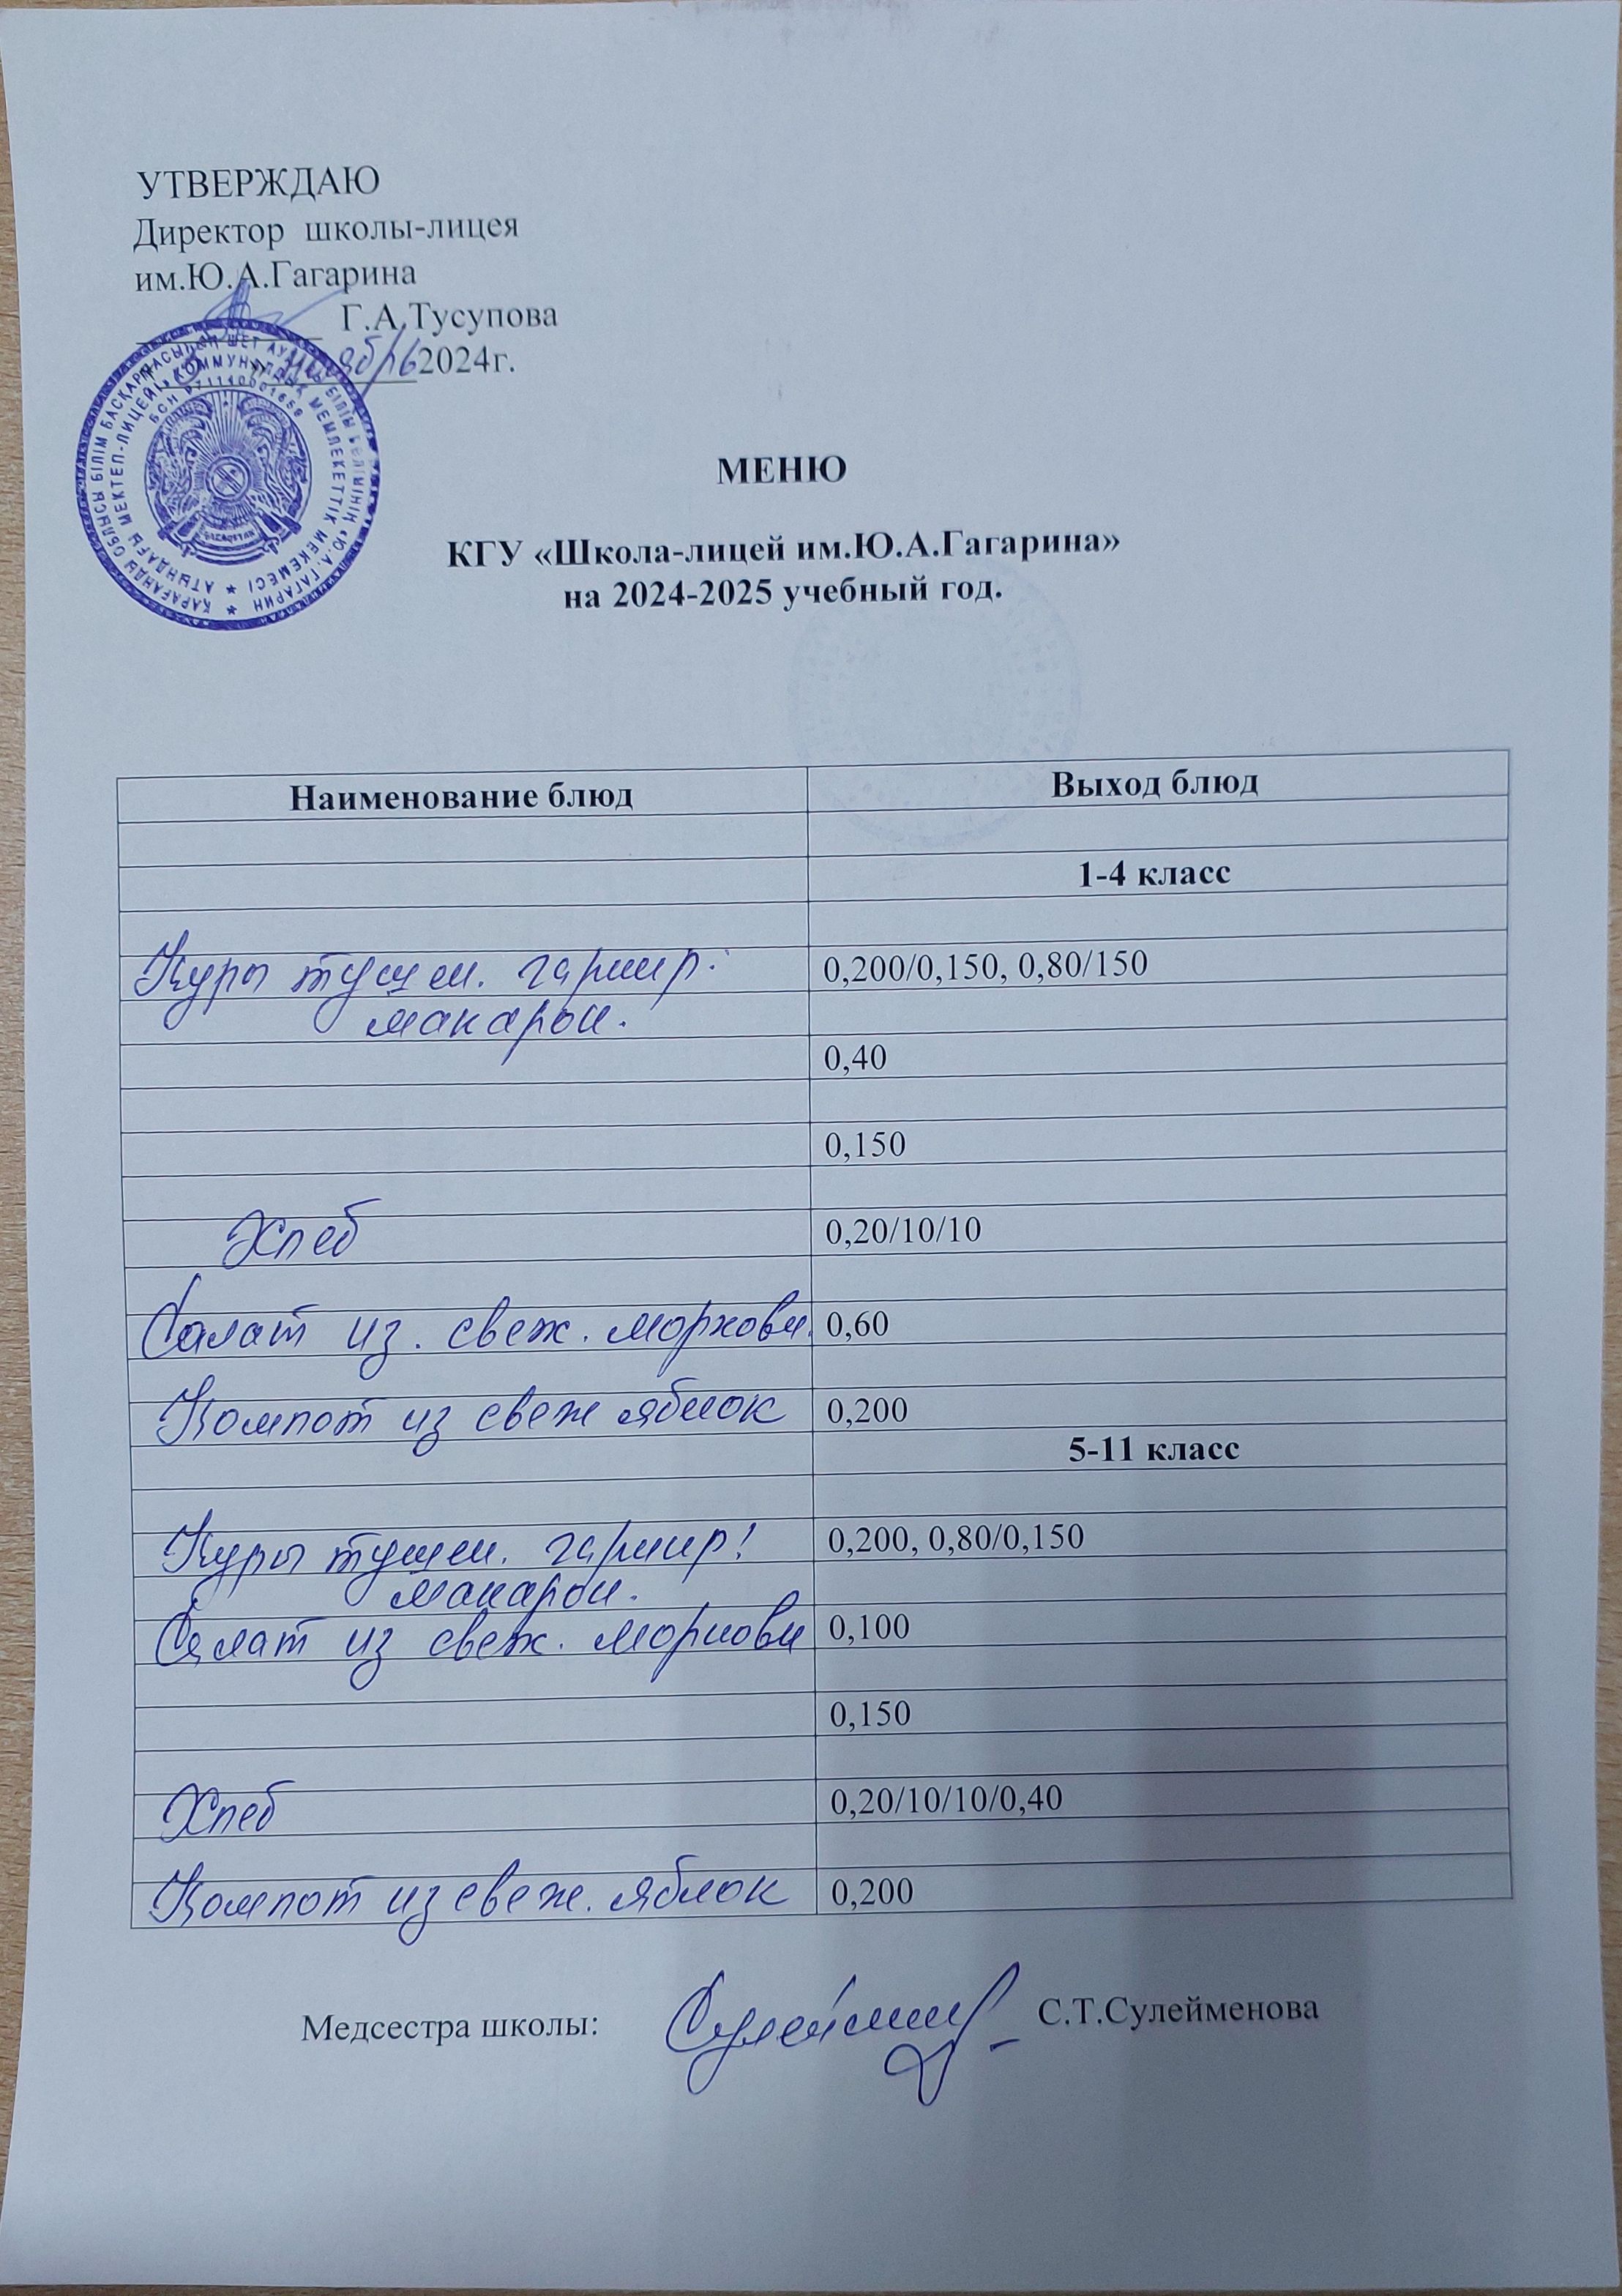 УТВЕРЖДАЮ
Директор школы-лицея
им.Ю.А.Гагарина
Г.А.Тусупова
ноябрь 2024г.
БСН 971140001659
МЕНЮ
КГУ «Школа-лицей им.Ю.А.Гагарина»
на 2024-2025 учебный год.
Наименование блюд Выход блюд
1-4 класс
Куры тушен. гарнир: 0,200/0,150, 0,80/150
макарон.
0,40
0,150
Хлеб 0,20/10/10
Салат из. свеж. моркови. 0,60
Компот из свеж яблок 0,200
5-11 класс
Куры тушен. гарнир: 0,200, 0,80/0,150
макарон.
Салат из свеж. моркови 0,100
0,150
Хлеб 0,20/10/10/0,40
Компот из свеж. яблок 0,200
Медсестра школы: С.Т.Сулейменова